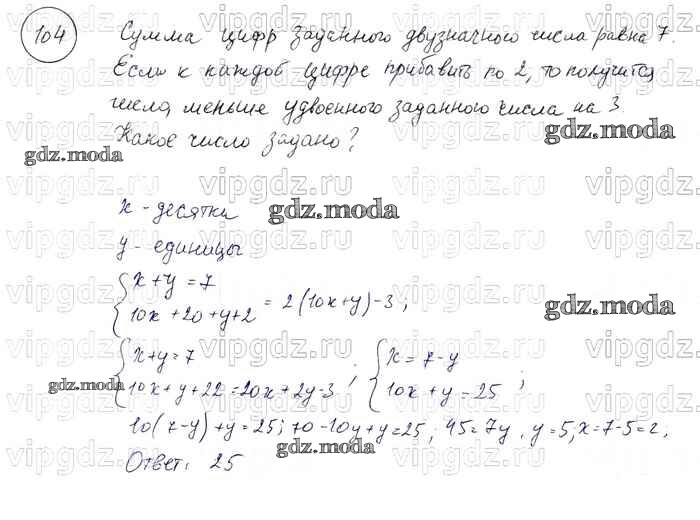 104
Сумма цифр заданного двузначного числа равна 7.
Если к каждой цифре прибавить по 2, то получится
число, меньше удвоенного заданного числа на 3.
Какое число задано?
x - десятки
y - единицы
{x+y=7
{10x+20+y+2 = 2(10x+y)-3;
{x+y=7
{10x+y+22=20x+2y-3;
{x=7-y
{10x+y=25;
10(7-y)+y=25; 70-10y+y=25, 45=7y, y=5, x=7-5=2.
Ответ: 25
gdz.moda
gdz.moda
gdz.moda
gdz.moda
gdz.moda
gdz.moda
vipgdz.ru